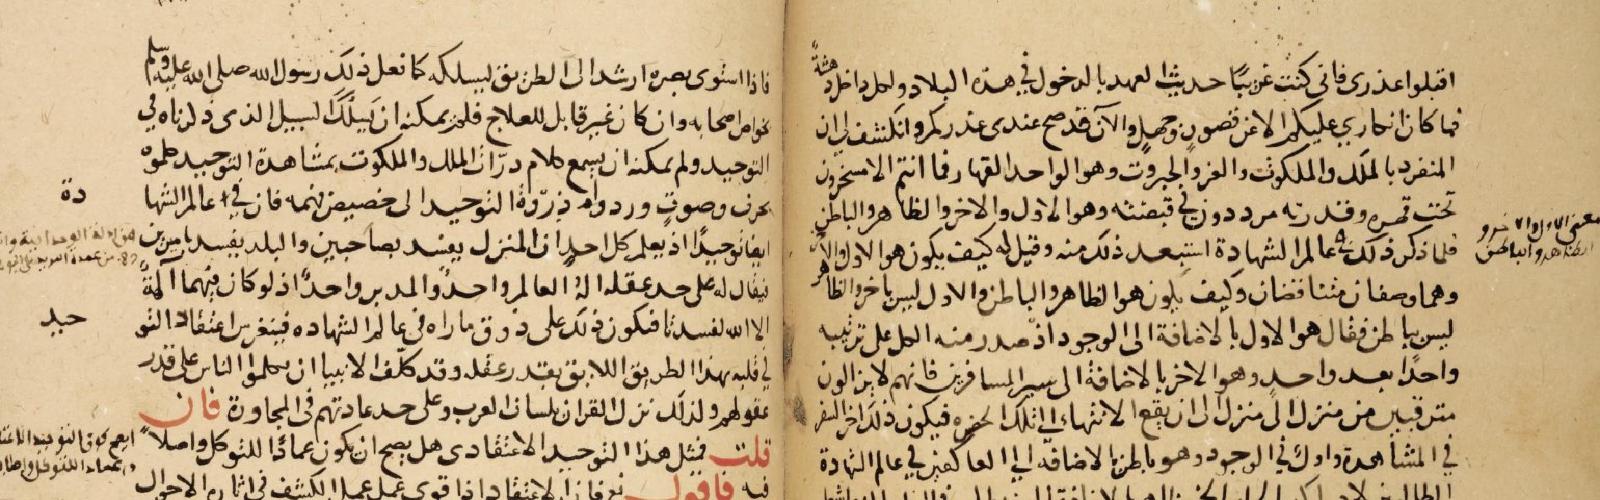 اقبلوا عذرى فانى كنت غريبًا حديث العهد بالدخول في هذه البلاد ولكل داخل دهشة
فما كان انكارى عليكم الا عن قصور وجهل والآن قد صح عندى عذركم وانكشف لى ان
المنفرد بالملك والملكوت والعز والجبروت وهو الواحد القهار فما انتم الا مسخرون
تحت قهره وقدرته مرددون في قبضته وهو الاول والاخر والظاهر والباطن
فلما ذكر ذلك في عالم الشهادة استبعد ذلك منه وقيل له كيف يكون هو الاول والآخر
وهما وصفان متناقضان وكيف يكون هو الظاهر والباطن والاول ليس باخر والظاهر
ليس بباطن فقال هو الاول بالاضافة الى الوجود اذ صدر منه الكل على ترتيبه
واحدًا بعد واحد وهو الاخر بالاضافة الى سير المسافرين فانهم لا يزالون
مترقيين من منزل الى منزل الى ان يقع الانتهاء الى تلك الحضرة فيكون ذلك اخر السفر
في المشاهدة واول في الوجود وهو باطن بالاضافة الى العاكفين في عالم الشهادة
معنى الاول والاخر و
الظاهر والباطن
فاذا استوى بصره ارشد الى الطريق ليسلكه كما فعل ذلك رسول الله صلى الله عليه وسلم
بخواص اصحابه وان كان غير قابل للعلاج فلم يمكنه ان يسلك السبيل الذى ذكرناه في
التوحيد ولم يمكنه ان يسمع كلام ذرات الملك والملكوت بمشاهدة التوحيد كلموه
بحرف وصوت وردوا ذروة التوحيد الى حضيض فهمه فان في عالم الشها
دة
ايضا توحيدًا اذ يعلم كل احد ان المنزل يفسد بصاحبين والبلد يفسد باميرين
فيقال له على حد عقله اله العالم واحد والمدبر واحد اذ لو كان فيهما آلهة
الا الله لفسدتا فيكون ذلك على ذوق ما راه في عالم الشهاده فينغرس اعتقاد التو
حيد
في قلبه بهذا الطريق اللايق بقدر عقله وقد كلف الانبيا ان يكلموا الناس على قدر
عقولهم ولذلك نزل القران بلسان العرب وعلى حد عادتهم في المحاورة فان
قلت فمثل هذا التوحيد الاعتقادى هل يصح ان يكون عمادًا للتوكل واصلا
فيه فاقول نعم فان الاعتقاد اذا قوى عمل عمل الكشف في اثارة الاحوال